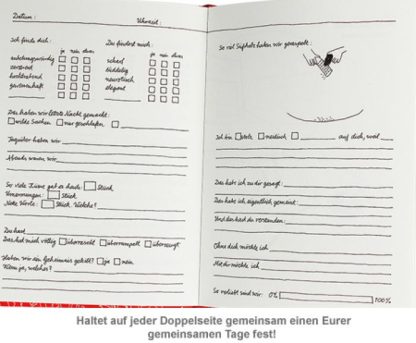 Datum: Uhrzeit:
Ich finde dich:
ja nein etwas
anbetungswürdig
verrückt
hochtrabend
Du findest mich:
ja nein etwas
scharf
kindelig
neurotisch
elegant
Das haben wir letzte Nacht gemacht:
wilde Sachen nur geschlafen
Tagsüber haben wir
Abends waren wir
So viele Küsse gab es heute: Stück
Umarmungen: Stück
Nette Worte: Stück. Welche?
Du hast
Das hat mich völlig überrascht überrumpelt überzeugt
Haben wir ein Geheimnis geteilt? ja nein
Wenn ja, welches?
So viel Süßholz haben wir geraspelt:
Ich bin stolz neidisch auf dich, weil
Das hab ich zu dir gesagt:
Das hab ich eigentlich gemeint:
Und das hast du verstanden:
Ohne dich möchte ich
Mit dir möchte ich
So verliebt sind wir: 0% 100%
Haltet auf jeder Doppelseite gemeinsam einen Eurer
gemeinsamen Tage fest!